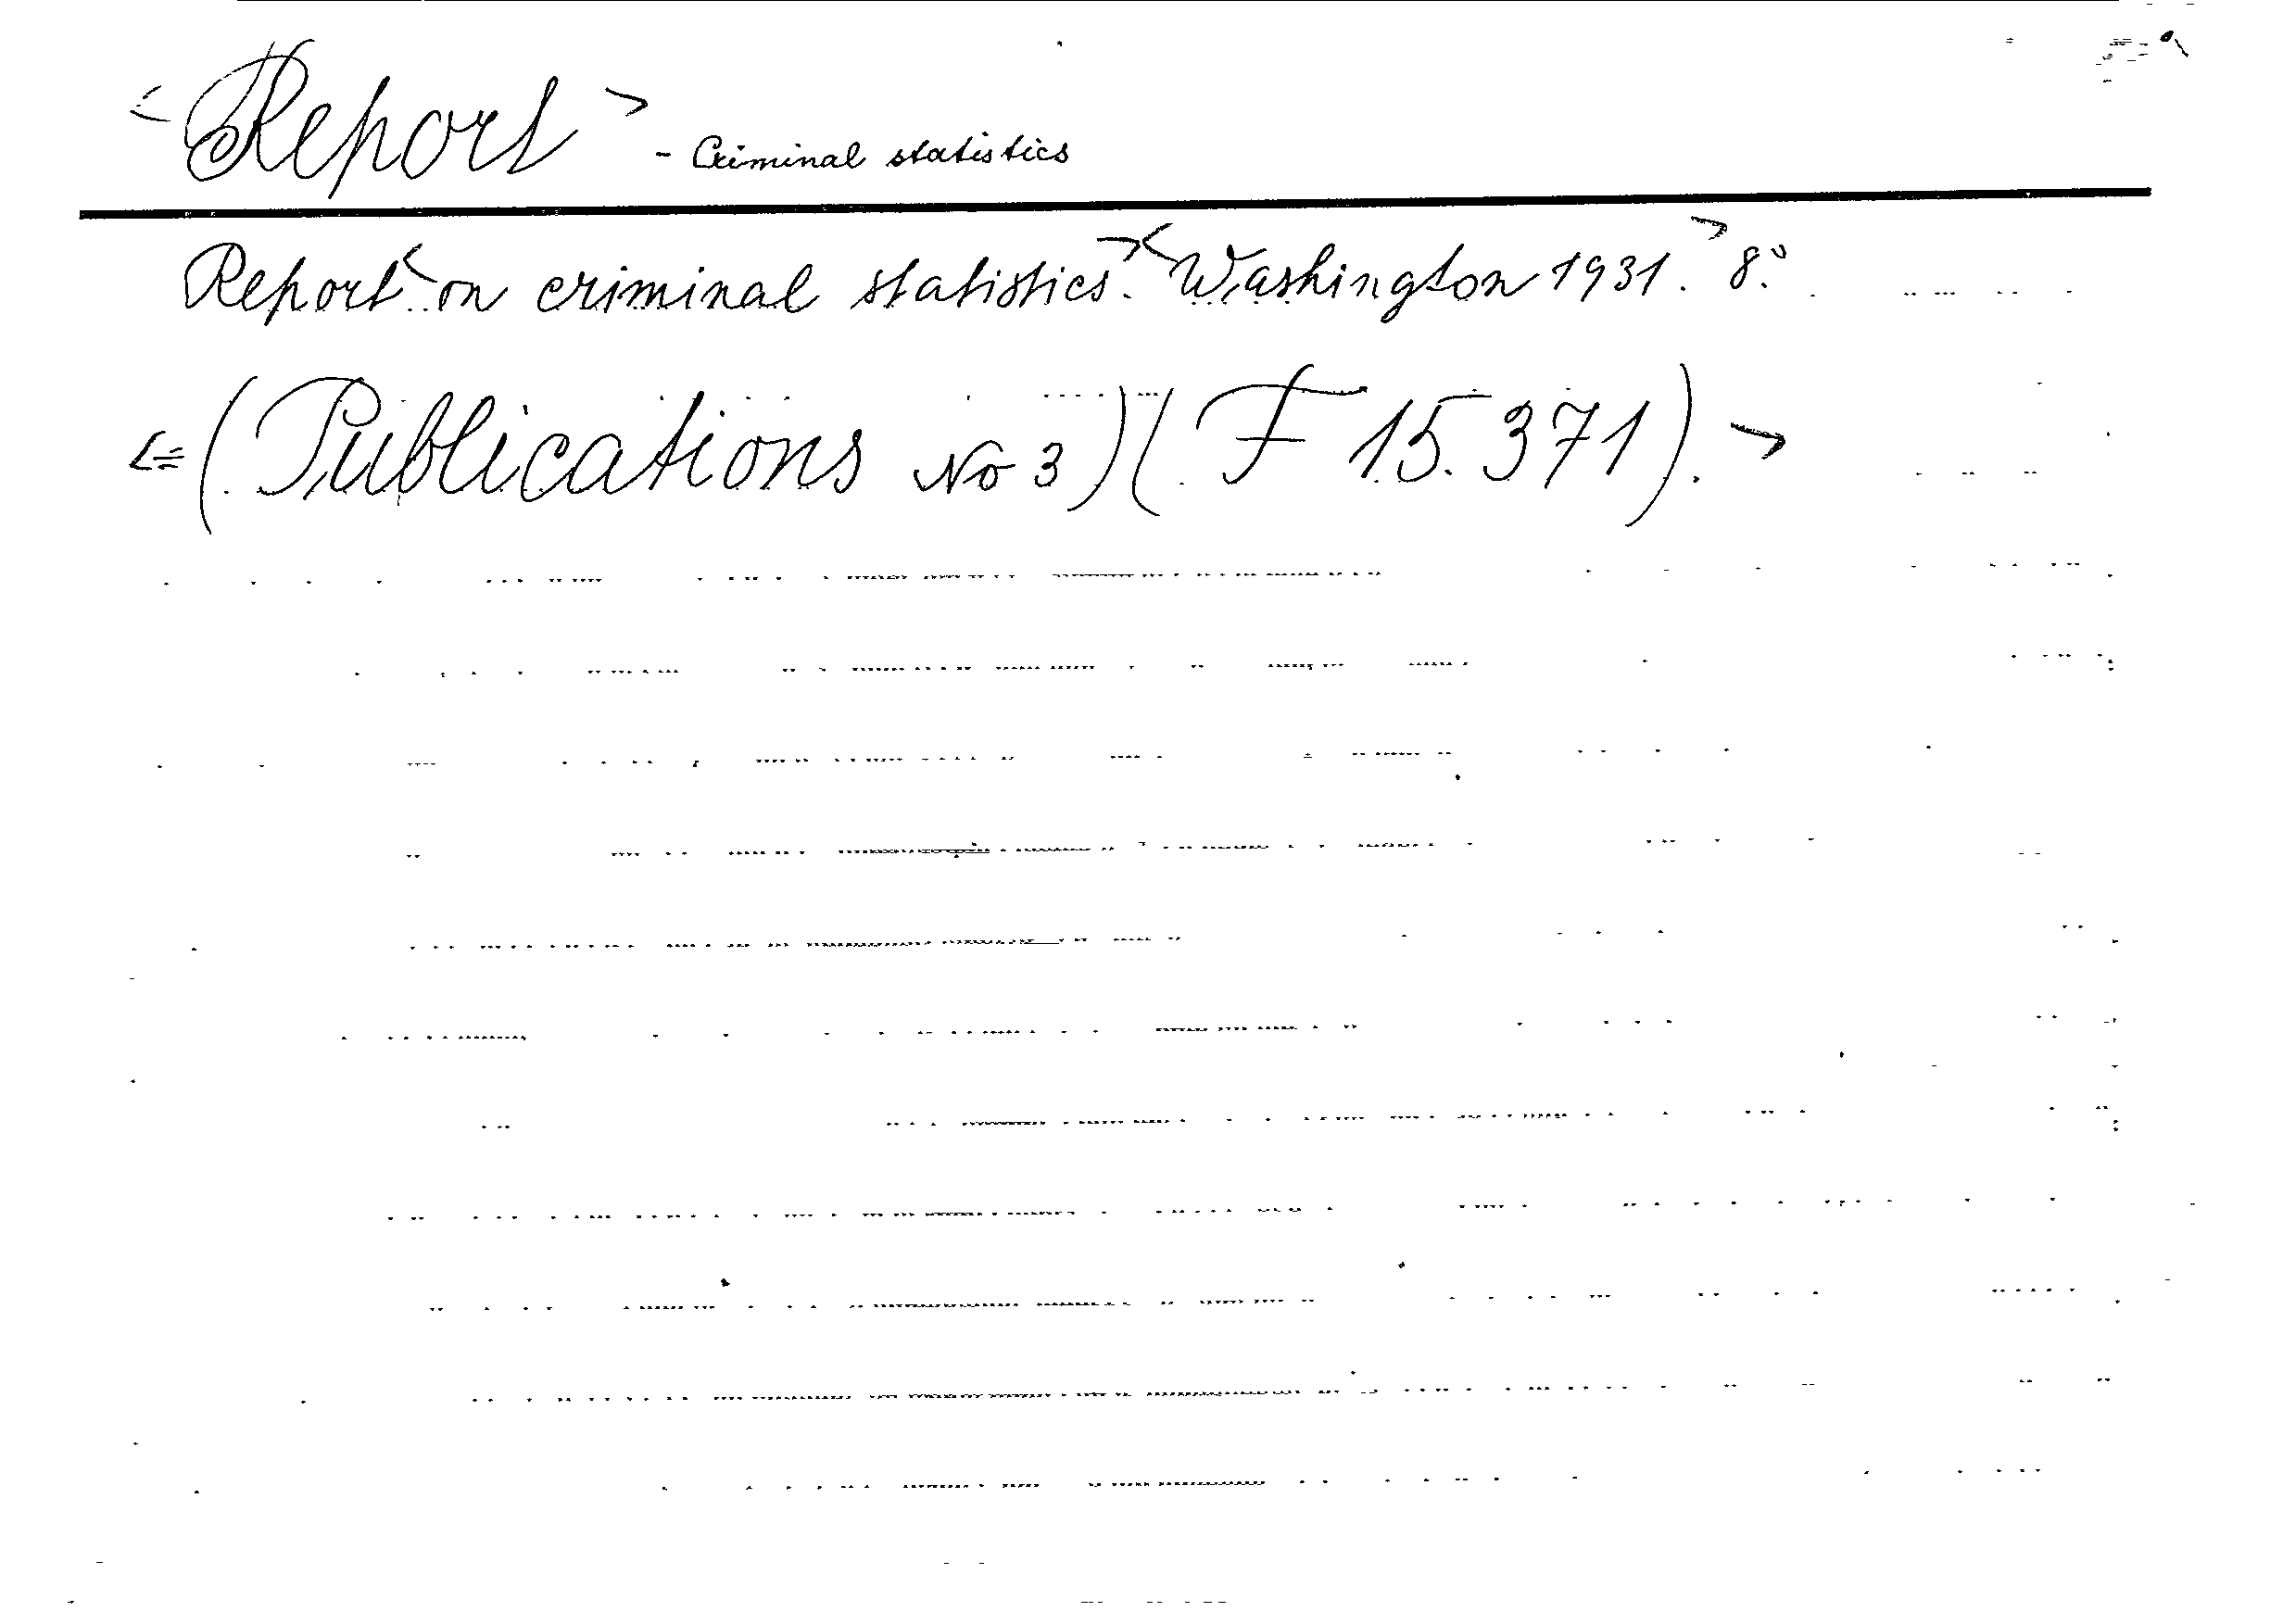 <Report> - Criminal statistics
Report < on criminal statistics. > < Washington 1931. > 8.°
<= (Publications No 3) (F 15.371). >